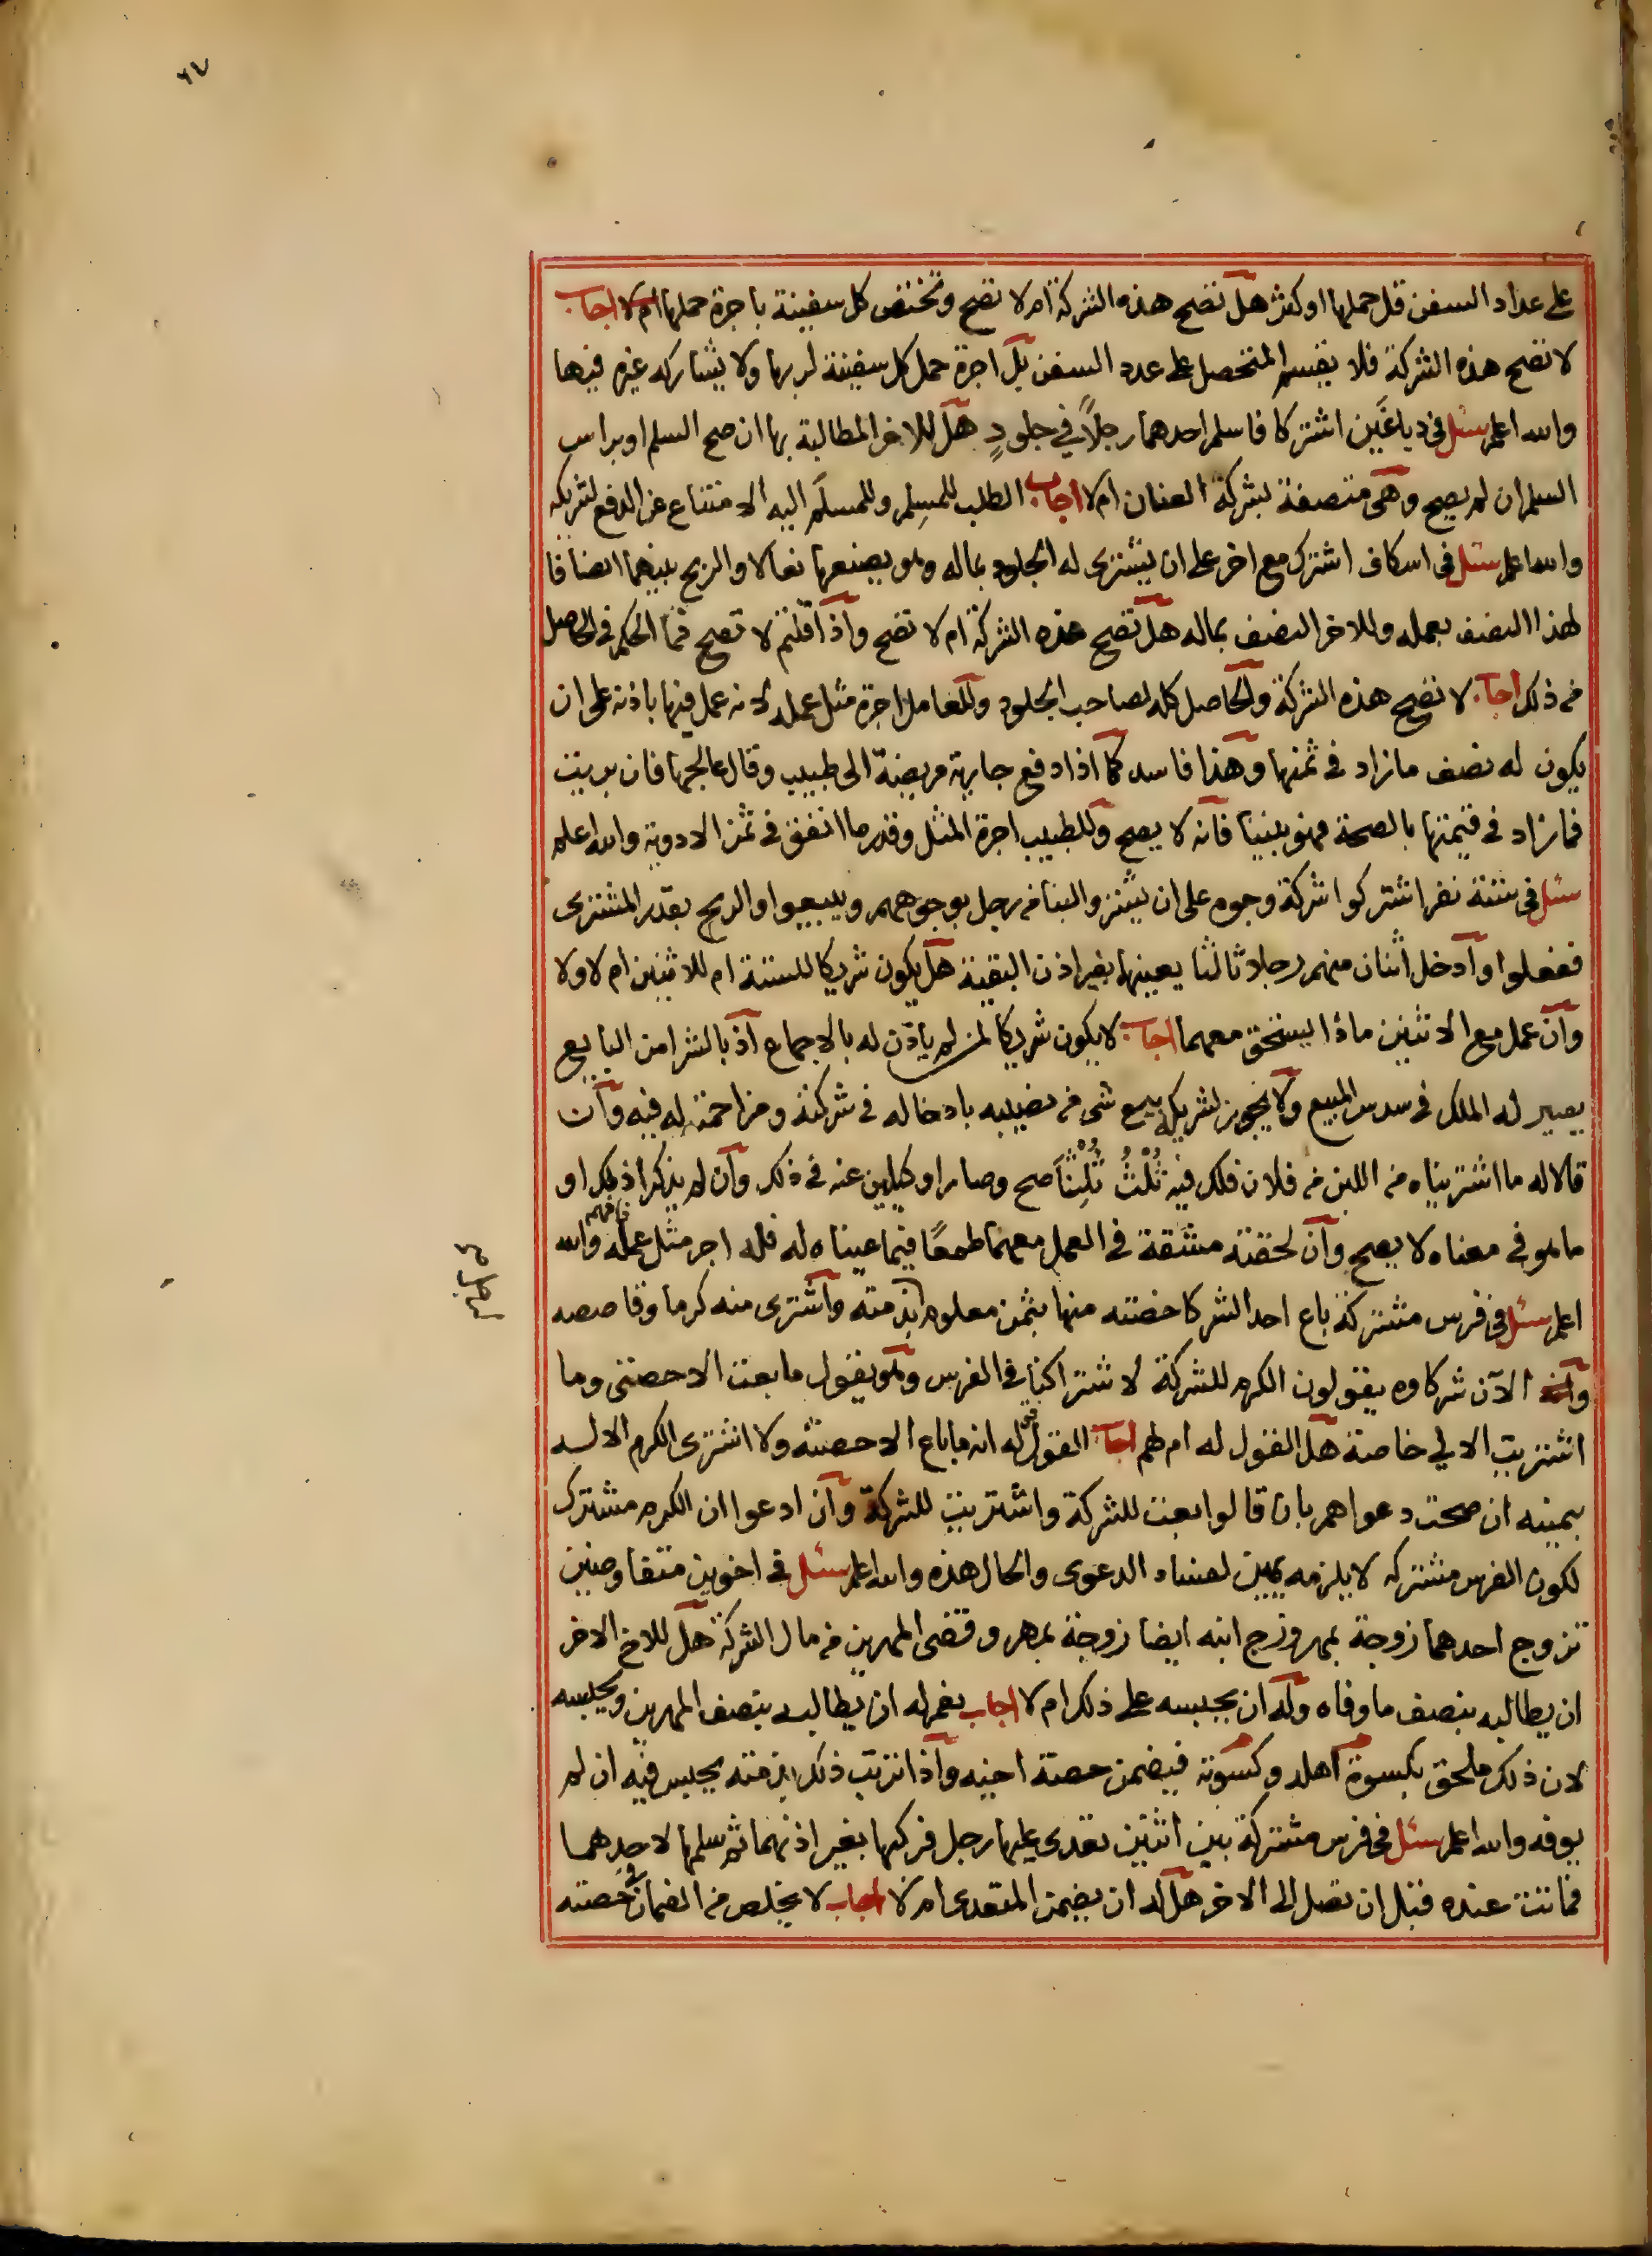 ٦٧
على عداد السفن قل حملها او كثر هل تصح هذه الشركة ام لا تصح وتختص كل سفينة باجرة حملها ام لا اجاب
لا تصح هذه الشركة فلا يقسم المتحصل على عدد السفن بل اجرة حمل كل سفينة لربها ولا يشاركه غيره فيها
والله اعلم سئل في دباغَين اشتركا فاسلم احدهما رجلاً في جلودٍ هل للاخر المطالبة بها ان صح السلم او براس
السلم ان لم يصح وهي متصفة بشركة العنان ام لا اجاب الطلب للمسلِم وللمسلَم اليه الامتناع عن الدفع لشريكه
والله اعلم سئل في اسكاف اشترك مع اخر على ان يشترى له الجلود بماله وهو يصنعها نعالا والربح بينهما انصافا
لهذا النصف بعمله وللاخر النصف بماله هل تصح هذه الشركة ام لا تصح واذا قلتم لا تصح فما الحكم في الحاصل
من ذلك اجاب لا تصح هذه الشركة والحاصل كله لصاحب الجلود وللعامل اجرة مثل عمله لانه عمل فيها باذنه على ان
يكون له نصف مازاد في ثمنها وهذا فاسد كما اذا دفع جارية مريضة الى طبيب وقال عالجها فان بريت
فمازاد في قيمتها بالصحة فهو بيننا فانه لا يصح وللطبيب اجرة المثل وقدر ما انفق في ثمن الادوية والله اعلم
سئل في ستة نفر اشتركوا شركة وجوه على ان يشتروا لبنا من رجل بوجوههم ويبيعوا والربح بقدر المشترى
ففعلوا وادخل اثنان منهم رجلا ثالثا يعينها بغير اذن البقية هل يكون شريكا للستة ام للاثنين ام لا ولا
وان عمل مع الاثنين ماذا يستحق معهما اجاب لا يكون شريكا لمن لم ياذن له بالاجماع اذ بالشرا من البايع
يصير له الملك في سدس المبيع ولا يجوز لشريكه بيع شي من نصيبه بادخاله في شركته ومزاحمته له فيه وان
قالا له ما اشتريناه من اللبن من فلان فلك فيه ثُلْثُ ثُلثِنَا صح وصارا وكيلين عنه في ذلك وان لم يذكرا ذلك او
ما هو في معناه لا يصح وان لحقته مشقة في العمل معهما طمعًا فيما عيناه له فله اجر مثل عمله فافهم والله
اعلم سئل في فرس مشتركة باع احد الشركا حصته منها بثمن معلوم بذمته واشترى منه كرما وقاصصه
والآن شركاوه يقولون الكرم للشركة لاشتراكنا في الفرس وهو يقول ما بعت الا حصتى وما
اشتريت الا لي خاصة هل القول له ام لهم اجاب القول له في انه ما باع الا حصته ولا اشترى الكرم الا له
بيمينه ان صحت دعواهم بان قالوا بعت للشركة واشتريت للشركة وان ادعوا ان الكرم مشترك
لكون الفرس مشتركه لا يلزمه يمين لفساد الدعوى والحال هذه والله اعلم سئل في اخوين متفاوضين
تزوج احدهما زوجة بمهر وزوج ابنه ايضا زوجة بمهر وقضى المهرين من مال الشركة هل للاخ الاخر
ان يطالبه بنصف ما وفاه وله ان يحبسه على ذلك ام لا اجاب نعم له ان يطالبه بنصف المهرين ويحبسه
لان ذلك ملحق بكسوة اهله وكسوته فيضمن حصة اخيه واذا ترتب ذلك بذمته يحبس فيه ان لم
يوفه والله اعلم سئل في فرس مشتركة بين اثنين تعدى عليها رجل فركبها بغير اذنهما ثم سلمها لاحدهما
فماتت عنده قبل ان تصل الى الاخر هل له ان يضمن المتعدى ام لا اجاب لا يخلص من الضمان في حصته